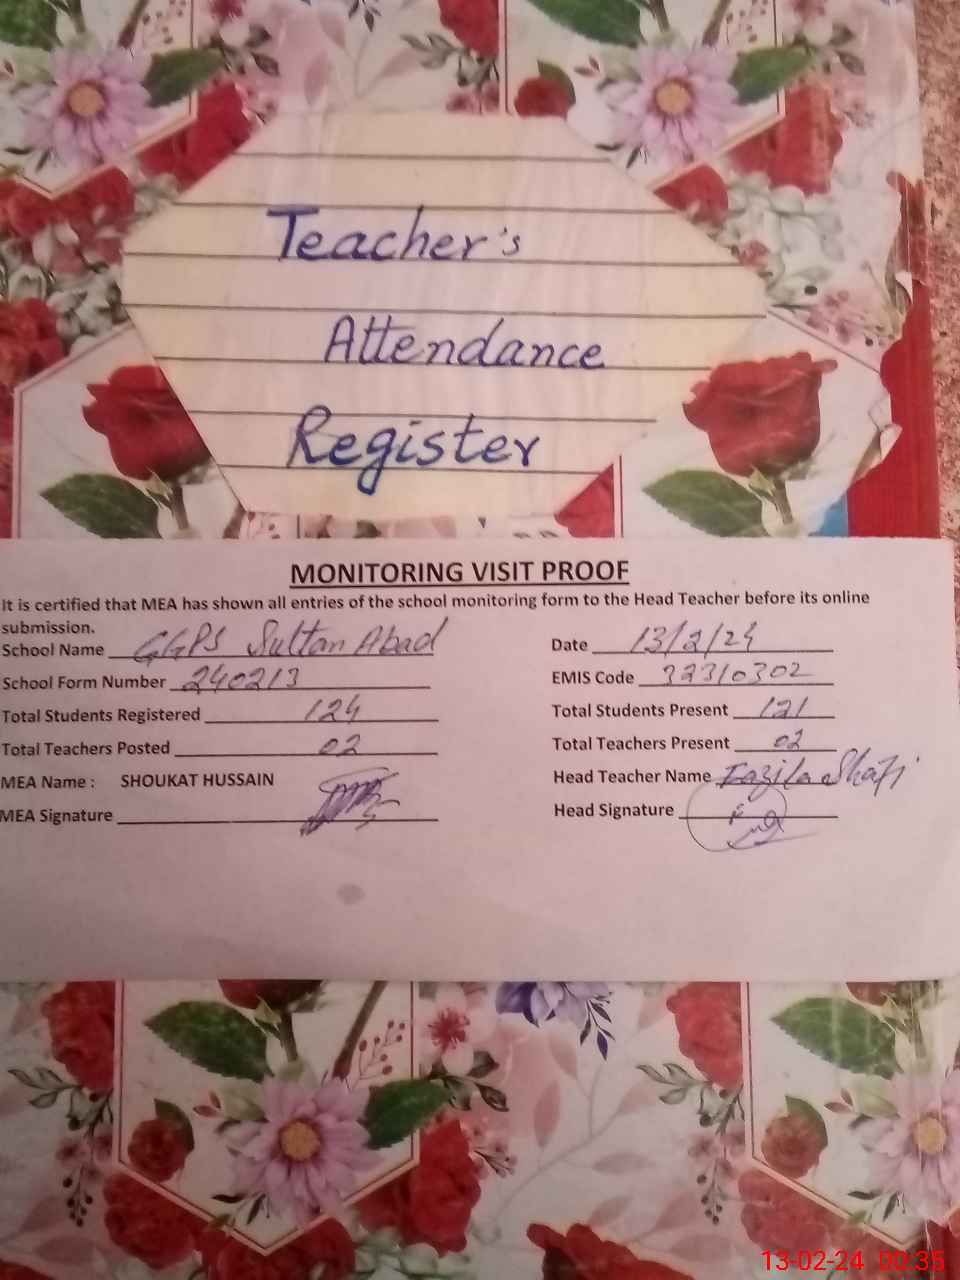 Teacher's
Attendance
Register
MONITORING VISIT PROOF
It is certified that MEA has shown all entries of the school monitoring form to the Head Teacher before its online
submission.
School Name GGPS Sultan Abad Date 13/2/24
School Form Number 240213 EMIS Code 32310302
Total Students Registered 124 Total Students Present 121
Total Teachers Posted 02 Total Teachers Present 02
MEA Name : SHOUKAT HUSSAIN Head Teacher Name Fazila Shafi
MEA Signature Head Signature
13-02-24 00:35